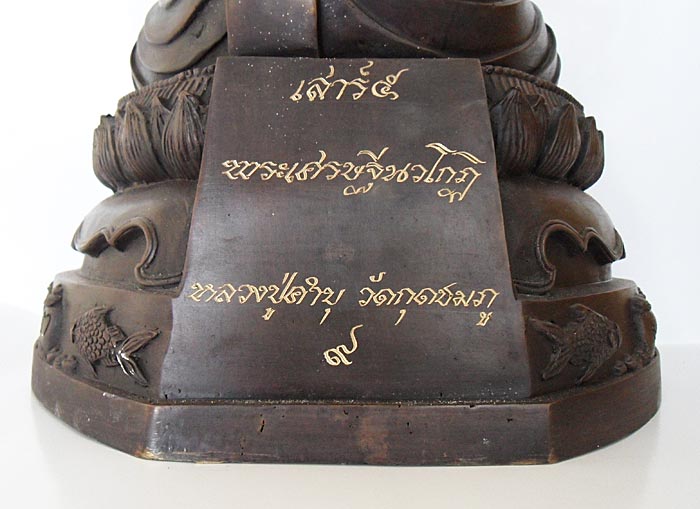 เสาร์๕
พระเศรษฐีนวโกฏิ
หลวงปู่คำบุ วัดกุดชมภู
๙